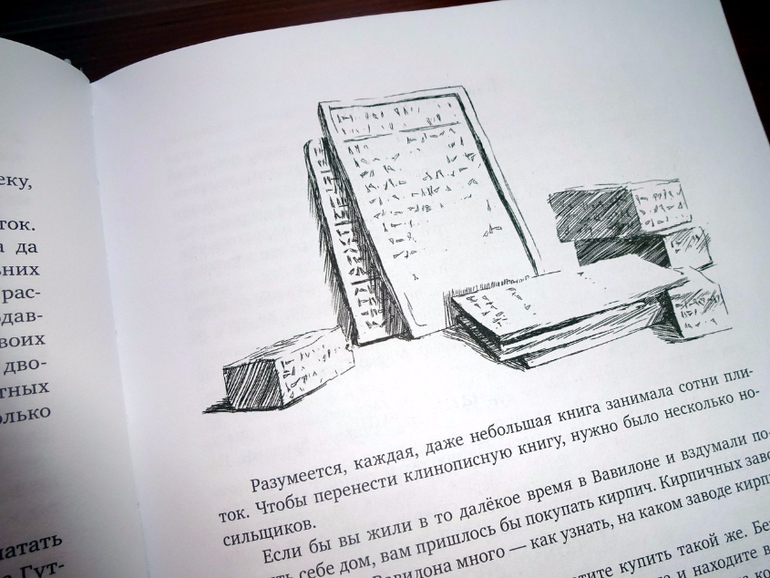 еку,
ток.
а да
вних
рас-
одав-
воих
дво-
тных
олько
чатать
Гут-
Разумеется, каждая, даже небольшая книга занимала сотни пли-
ток. Чтобы перенести клинописную книгу, нужно было несколько но-
сильщиков.
Если бы вы жили в то далёкое время в Вавилоне и вздумали по-
ть себе дом, вам пришлось бы покупать кирпич. Кирпичных заво
Вавилона много — как узнать, на каком заводе кирп
тите купить такой же. Бе
и находите в